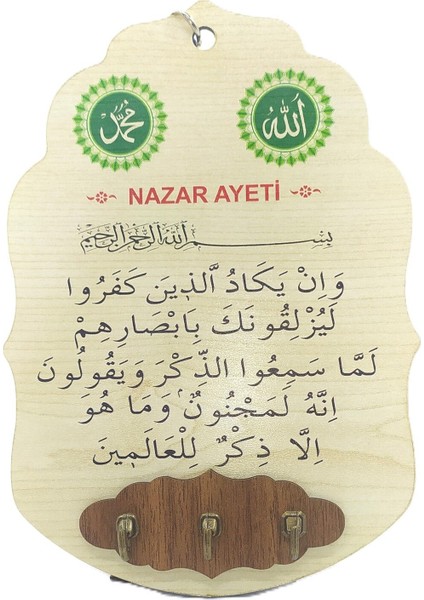 الله
محمد
NAZAR AYETİ
بِسْمِ اللهِ الرَّحْمٰنِ الرَّحِيمِ
وَاِنْ يَكَادُ الَّذ۪ينَ كَفَرُوا
لَيُزْلِقُونَكَ بِاَبْصَارِهِمْ
لَمَّا سَمِعُوا الذِّكْرَ وَيَقُولُونَ
اِنَّهُ لَمَجْنُونٌۢ وَمَا هُوَ
اِلَّا ذِكْرٌ لِلْعَالَم۪ينَ